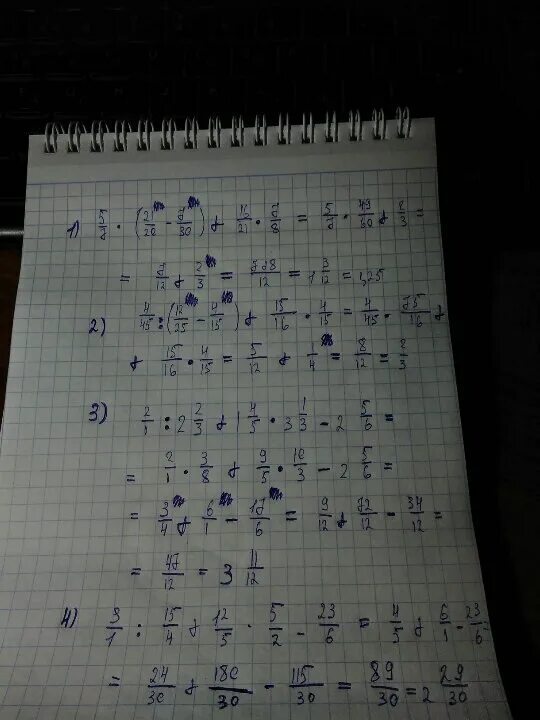 1) 5/7 · (21/20 - 7/30) + 16/21 · 7/8 = 5/7 · 49/60 + 2/3 =
= 7/12 + 2/3 = 7+8/12 = 1 3/12 = 1,25
2) 4/45 : (12/25 - 4/15) + 15/16 · 4/15 = 4/45 · 75/16 +
+ 15/16 · 4/15 = 5/12 + 1/4 = 8/12 = 2/3
3) 2/1 : 2 2/3 + 1 4/5 · 3 1/3 - 2 5/6 =
= 2/1 · 3/8 + 9/5 · 10/3 - 2 5/6 =
= 3/4 + 6/1 - 17/6 = 9/12 + 72/12 - 34/12 =
= 47/12 = 3 11/12
4) 3/1 : 15/4 + 12/5 · 5/2 - 23/6 = 4/5 + 6/1 - 23/6
= 24/30 + 180/30 - 115/30 = 89/30 = 2 29/30